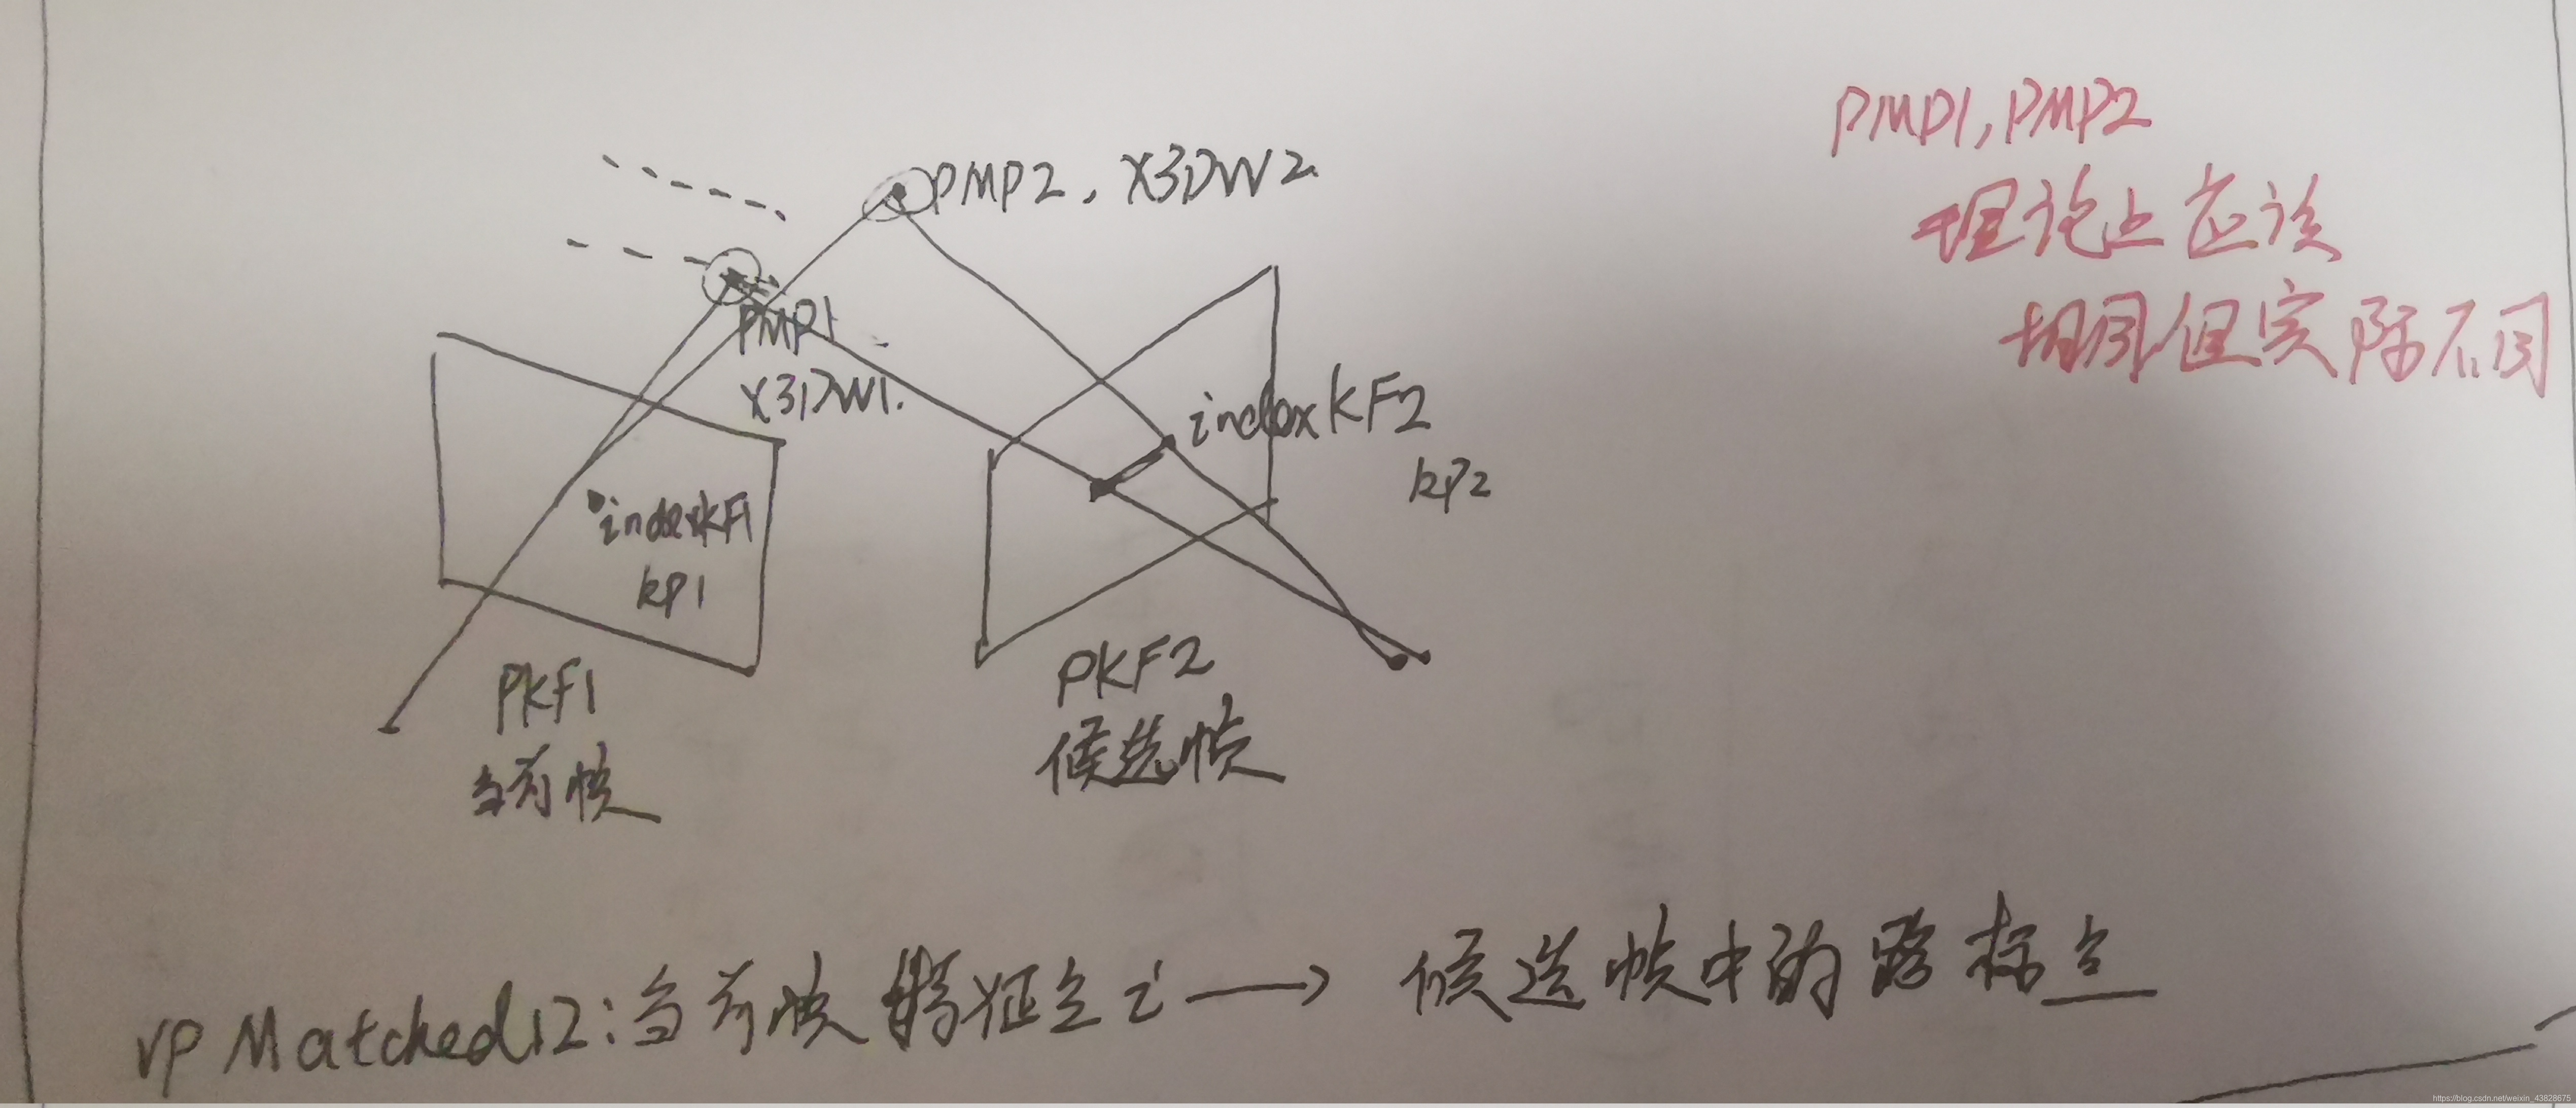 PMP1, PMP2
理论上应该
相同但实际不同
PMP2, X3DW2.
PMP1
X3DW1.
indexKF2
kp2
indexKF1
kp1
PKF1
当前帧
PKF2
候选帧
vpMatched12:当前帧特征点i → 候选帧中的路标点
https://blog.csdn.net/weixin_43828675